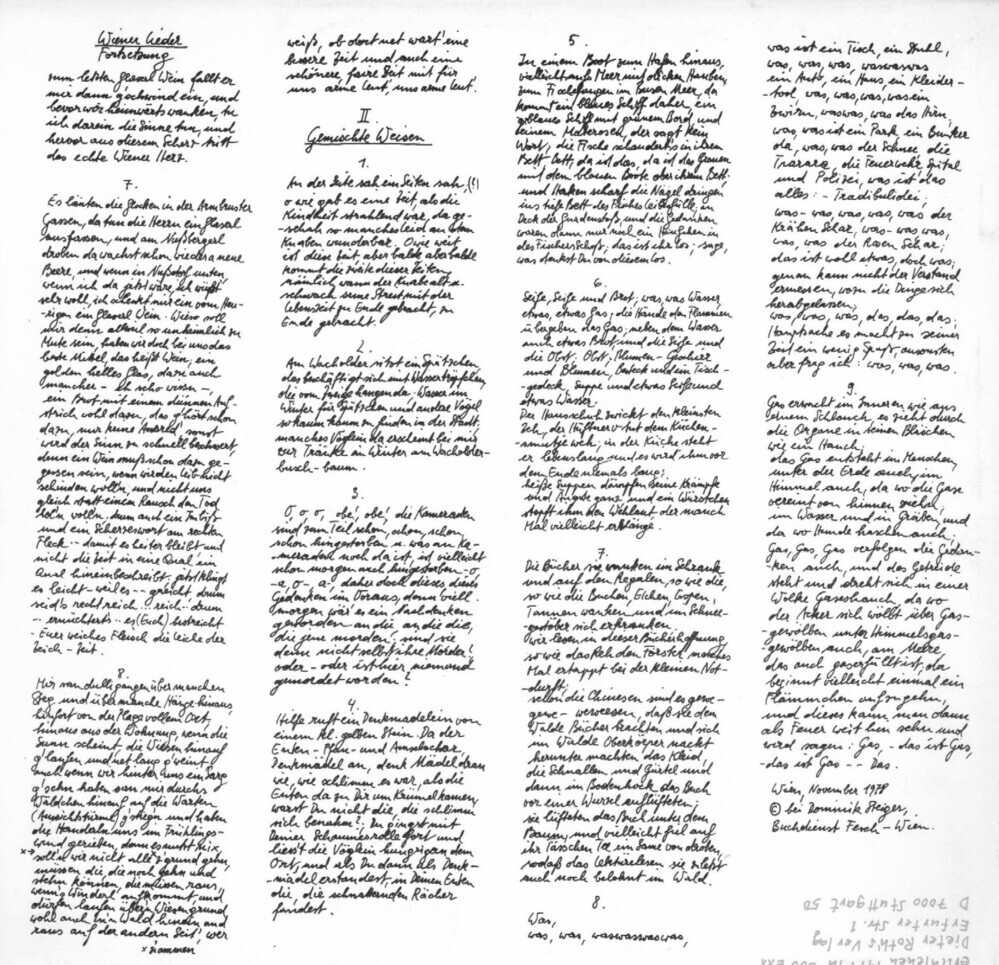 Wiener Lieder
Fortsetzung
zum letzten glasal Wein fallt er
mir dann g'schwind ein, und
bevor wir heimwärts wanken, tu
ich darein die Sinne tun, und
hervor aus diesem Scherz tritt
das echte Wiener Herz.
7.
Es läuten die Glocken in der Armbruster
Gassen, da tan die Herrn ein glasal
ausfassen, und am Nußbergerl
droben da wachst schon wieder a neue
Beere, und wenn in Nußdorf unten,
wenn ich da jetzt wäre, ich wüßt
sehr wohl, ich
ein glasal Wein. Wieso soll
mir denn allweil so unheimlich zu
Mute sein, haben wir doch bei uns das
beste Mittel, das heißt Wein, ein
golden helles Glas, dazu auch
mancher - eh scho wissen -,
ein Brot mit einem dünnen Auf-
strich wohl dazu, das g'hört schon
dazu, nur keine sonst
wird der Sinn zu schnell beschwert,
denn ein Wein muß schon dazu ge-
gossen sein, wenn wir den Leib nicht
schinden wolln, und nicht uns
gleich statt einem Rausch den Tod
hol'n voll'n. dann auch ein Imbiß
und ein Scherzeswort am rechten
Fleck -- damit es heiter bleibt und
nicht die Zeit in eine Qual ein
Aual hineinbeschreibt. jetzt klingt
es leicht - weil es -- greicht drum
seid's recht reich -- reich - drum
-- ernüchterts -- es (Euch) bestreicht
- Euer weiches Fleisch die Leiche der
Zeich - Zeit.
8.
Mir san dulli gangen über manchen
Steg und über manche Hänge hinaus,
hinfort von der Plage vollem Ort,
hinaus aus der Wohnung, wenn die
Sunn scheint, die Wiesen hinauf
g'laufen und net lang g'weint,
auch wenn wir hinter uns ein Sarg
g'sehn haben san mir durchs
Wäldchen hinauf auf die Warten
(Aussichtstürmel) g'stiegn und haben
die Handaln uns im Frühlings-
wind gerieben, dann es nutzt nix,
x→ solln wir nicht alle z'grund gehn,
müssen die, die noch gehn und
stehn können, die müssen raus,
wenn's Winderl aufkommt, und
dürfen laufen übern Wiesengrund
wohl auch in'n Wald hinein und
raus auf der andern Seit', wer
x zsammen
weiß, ob dort net wart' eine
bessere Zeit und auch eine
schönere, faire Zeit mit für
uns arme Leut', uns arme Leut'.
II
Gemischte Weisen
1.
An der Seite sah ein Seiten sah, (!)
o wie gab es eine Zeit als die
Kindheit strahlend war, da ge-
-schah so manches leid an
Knaben wunderbar. O wie weit
ist diese Zeit aber balde aber balde
kommt die zweite dieser Zeiten,
nämlich wann der Knabe alt u.
schwach seine Strecke mit der
Lebenszeit zu Ende gebracht, zu
Ende gebracht.
2.
Am Wacholder sitzt ein Spätzchen,
das beschäftigt sich mit Wassertröpfchen,
die vom Zweige hangen da. Wasser im
Winter für Spätzchen und andre Vögel
so kaum kaum zu finden in der Stadt;
manches Vöglein da erscheint bei mir
zur Tränke im Winter am Wacholder-
busch - baum.
3.
O, o, o, obe', obe', die Kameraden
sind zum Teil schon, schon, schon
schon hingestorben, u. was an Ka-
meraden noch da ist, ist vielleicht
schon morgen auch hingestorben - o-
-a, o-, a- daher doch dieses dieses
Gedenken im Voraus, denn viell.
morgen wär' es ein Nachdenken
geworden an die an die die,
die jene morden; sind sie
denn nicht selbst ihre Mörder?
oder - oder ist hier niemand
gemordet worden?
4.
Hilfe ruft ein Denkmädelein von
einem kl. gelben Stein. Da der
Enten - Pfau - und Amselschar,
Denkmädel an, denk Mädel dran
wie, wie schlimm es war, als die
Enten da zu Dir um Krümel kamen,
warst Du nicht die, die schlimm
sich benahm?; Du gingst mit
Deiner Schaumesrolle fort und
ließt die Vöglein hungrig an dem
Ort, und als Du dann als Denk-
-mädel erstandest, in Deinen Enten
die, die schnakernden Rächer
fandest.
5.
In einem Boot zum Hafen hinaus,
vielleicht aufs Meer mit dicken Hauben,
zum Fischefangen im Busen Meer, da
kommt ein blaues Schiff daher, ein
blaues Schiff mit grünem Bord und
keinem Matrosen, der sagt kein
Wort, die Fische schaudert's in ihrem
Bett - Bett, da ist das, da ist das Grauen
mit dem blauen Boote ober ihrem Bett
und Haken scharf die Nägel dringen
ins tiefe Bett des
Deck der und die Gedanken
waren dann nur noch ein Häufchen in
des Fischers Schoß; das ist ihr los; sage,
was denkst Du von diesem los.
6.
Seife, Seife und Brot; was, was Wasser
etwas, etwas Gas; die Hände den Flammen
übergeben das Gas; neben dem Wasser
auch etwas Brot und die Seife und
die Obst, Obst, Blumen - Geschirr
und Blumen, Besteck und ein Tisch-
-gedeck, Suppe und etwas Seife und
etwas Wasser.
Der Handschuh zwickt den kleinsten
Zeh, der Hüftner tut dem Kirchen-
weh; in der Küche steht
er lebenslang und es wird ihm vor
dem Ende niemals bang;
heiße Suppen dämpfen seine Krämpfe
und Ängste ganz und ein Würstchen
stopft ihm den Wehlaut der manch
Mal vielleicht erklänge.
7.
Die Bücher sie wanken im Schrank
und auf den Regalen, so wie die,
so wie die Buchen, Eichen, Espen,
Tannen wanken und im Schnee-
-gestöber sich erkranken.
wir lesen in dieser Bücherhoffnung,
so wie das Reh den Förster manches
Mal ertappt bei der kleinen Not-
-durft;
schon die Chinesen sind es gewe-
gewe- gewesen, daß sie dem
Walde Bücher brachten und sich
im Walde Oberkörper nackt
herunter machten das Kleid,
die Schnallen und Gürtel und
dann im Bodenhock das Buch
vor einer Wurzel auflüfteten;
sie lüfteten das Buch unter dem
Baum, und vielleicht fiel auf
ihr Tässchen Tee ein Same von da oben,
sodaß das Lektürelesen sie zuletzt
auch noch belohnt im Wald.
8.
Was,
was, was, waswaswaswas,
was ist ein Tisch, ein Stuhl,
was, was, was, waswaswas
ein Auto, ein Haus, ein Kleider-
-tool, was, was, was, was ein
Zwirn, waswas, was das Hirn,
was, was ist ein Park, ein Bunker
da, was, was der Schnee, die
Trárara, die Feuerwehr, Spital
und Polizei, was ist das
alles: - Tradibulidei;
was - was, was, was, was der
Krähen Schar, was - was was,
was, was der Rosen Schar;
das ist wohl etwas, doch was;
genau kann nicht der Verstand
ermessen, wozu die Dinge sich
herabgelassen;
was, was, was, das, das, das;
Hauptsache es macht zu seiner
Zeit ein wenig Spaß, ansonsten
aber frag ich: was, was, was.
9.
Gas erwacht im Inneren wie aus
einem Schlauch, es zieht durch
die Organe in seinen Bläschen
wie ein Hauch;
das Gas entsteht im Menschen,
unter der Erde auch, im
Himmel auch, da wo die Gase
vereint von hinnen ziehn,
im Wasser und in Gräben, und
da wo Hunde haschen auch;
Gas, Gas, Gas verfolgen die Gedan-
ken auch, und das Getreide
steht und dreht sich in einer
Wolke Gaseshauch, da wo
der Acker sich wölbt über Gas-
-gewölben unter Himmelsgas-
-gewölben auch, am Meere,
das auch gaserfüllt ist, da
beginnt vielleicht einmal ein
Flämmchen aufzugehn,
und dieses kann man dann
als Feuer weit hin sehn und
wird sagen: Gas, - das ist Gas,
- das ist Gas - - Das.
Wien, November 1978
© bei Dominik Steiger,
Buchdienst Fesch - Wien.
D 7000 Stuttgart 50
Erfurter Str. 1
Dieter Roth's Verlag